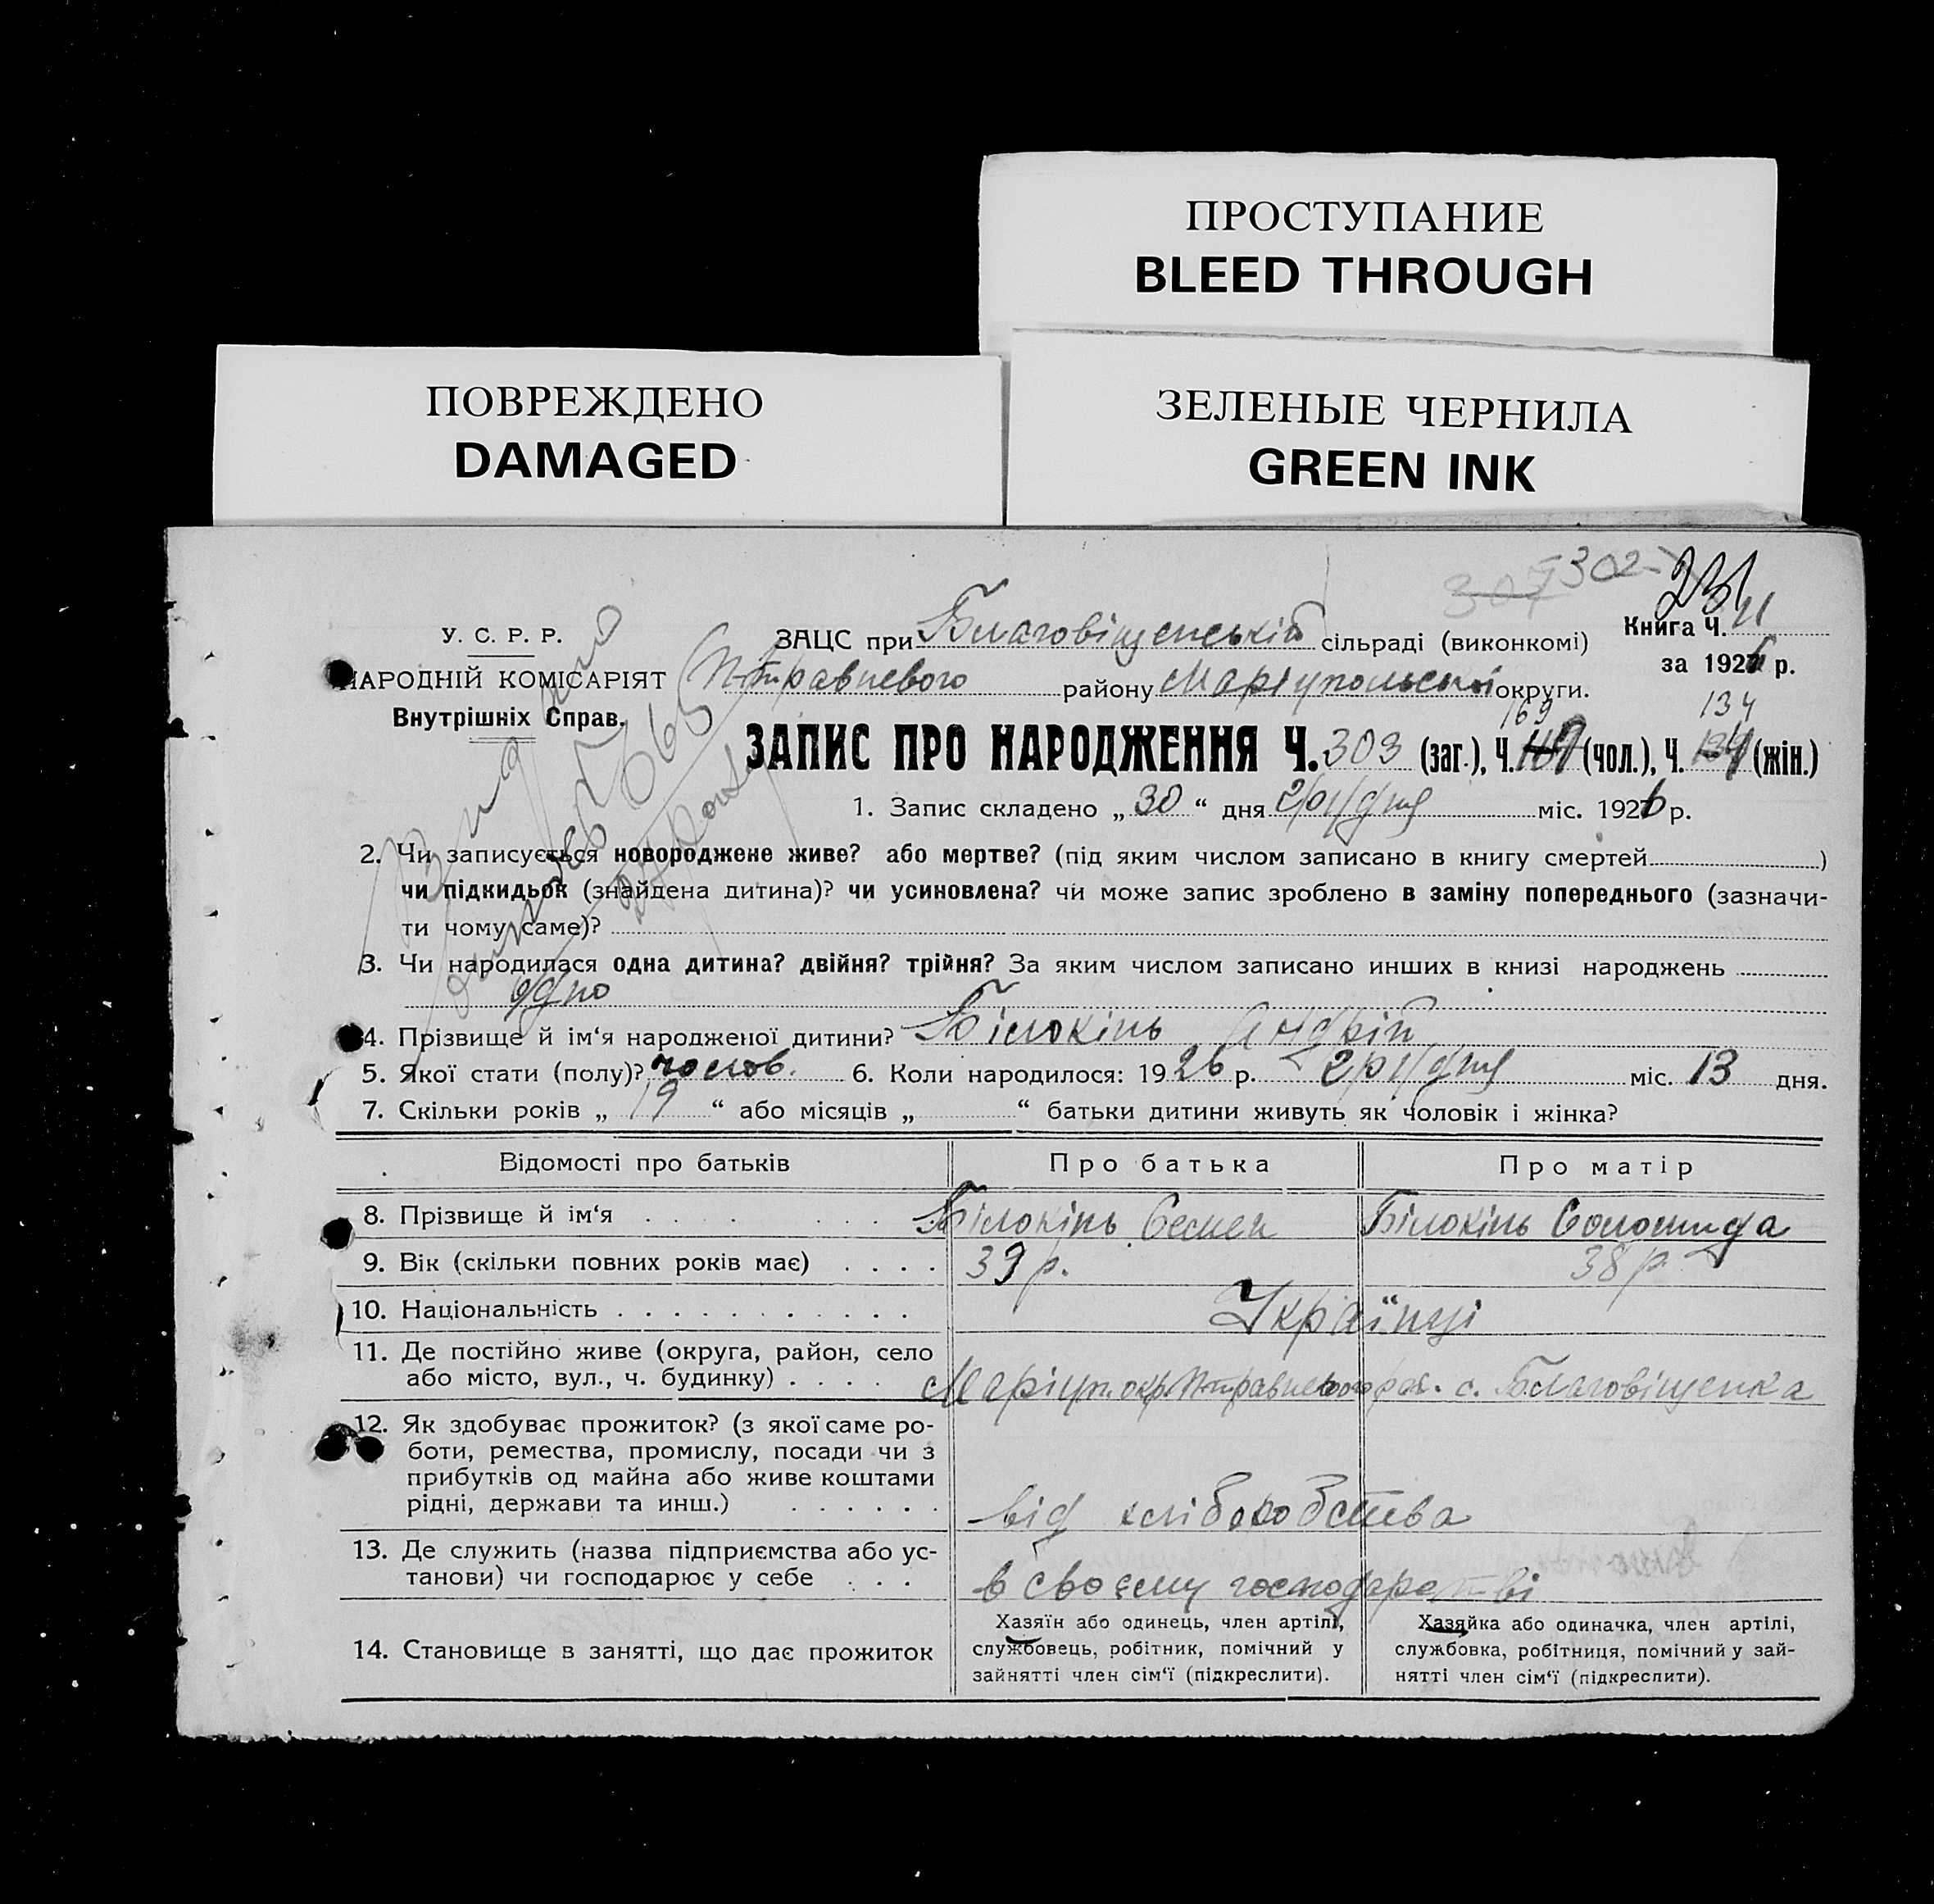 ПРОСТУПАНИЕ
BLEED THROUGH
ПОВРЕЖДЕНО
DAMAGED
ЗЕЛЕНЫЕ ЧЕРНИЛА
GREEN INK
302
231
У. С. Р. Р.
НАРОДНІЙ КОМІСАРІЯТ
Внутрішніх Справ.
ЗАЦС при Благовіщенській сільраді (виконкомі)
Книга Ч. 11
за 1926 р.
П-травневого району Маріупольської округи.
169 134
ЗАПИС ПРО НАРОДЖЕННЯ Ч. 303 (заг.), Ч. (чол.), Ч. (жін.)
1. Запис складено „ 30 “ дня грудня міс. 1926 р.
2. Чи записується новороджене живе? або мертве? (під яким числом записано в книгу смертей )
чи підкидьок (знайдена дитина)? чи усиновлена? чи може запис зроблено в заміну попереднього (зазначи-
ти чому саме)?
3. Чи народилася одна дитина? двійня? трійня? За яким числом записано инших в книзі народжень
одно
4. Прізвище й ім‘я народженої дитини? Білокінь Андрій
5. Якої стати (полу)? чолов. 6. Коли народилося: 1926 р. грудня міс. 13 дня.
7. Скільки років „ 19 “ або місяців „ “ батьки дитини живуть як чоловік і жінка?
Відомості про батьків Про батька Про матір
8. Прізвище й ім‘я Білокінь Семен Білокінь Соломида
9. Вік (скільки повних років має) 39 р. 38 р.
10. Національність Українці
11. Де постійно живе (округа, район, село
або місто, вул., ч. будинку) Маріуп. окр. П-травневого рай. с. Благовіщенка
12. Як здобуває прожиток? (з якої саме ро-
боти, ремества, промислу, посади чи з
прибутків од майна або живе коштами
рідні, держави та инш.) від хліборобства
13. Де служить (назва підприємства або ус-
танови) чи господарює у себе в своєму господарстві
14. Становище в занятті, що дає прожиток
Хазяїн або одинець, член артілі,
службовець, робітник, помічний у
зайнятті член сім‘ї (підкреслити).
Хазяйка або одиначка, член артілі,
службовка, робітниця, помічний у зай-
нятті член сім‘ї (підкреслити).